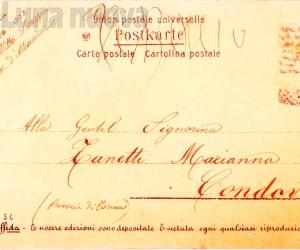 Luna nuova
Union postale universelle
Postkarte
Carte postale Cartolina postale
Alla Gentil Signorina
Zanetti Marianna
Condov
Provincia di Brescia
ffida - le nostre edizioni sono depositate. È vietata ogni qualsiasi riproduzio